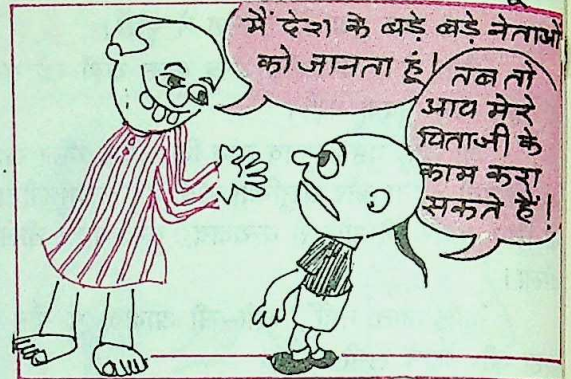 मैं देश के बड़े बड़े नेताओं
को जानता हूं!
तब तो
आप मेरे
पिताजी के
काम करा
सकते हैं!